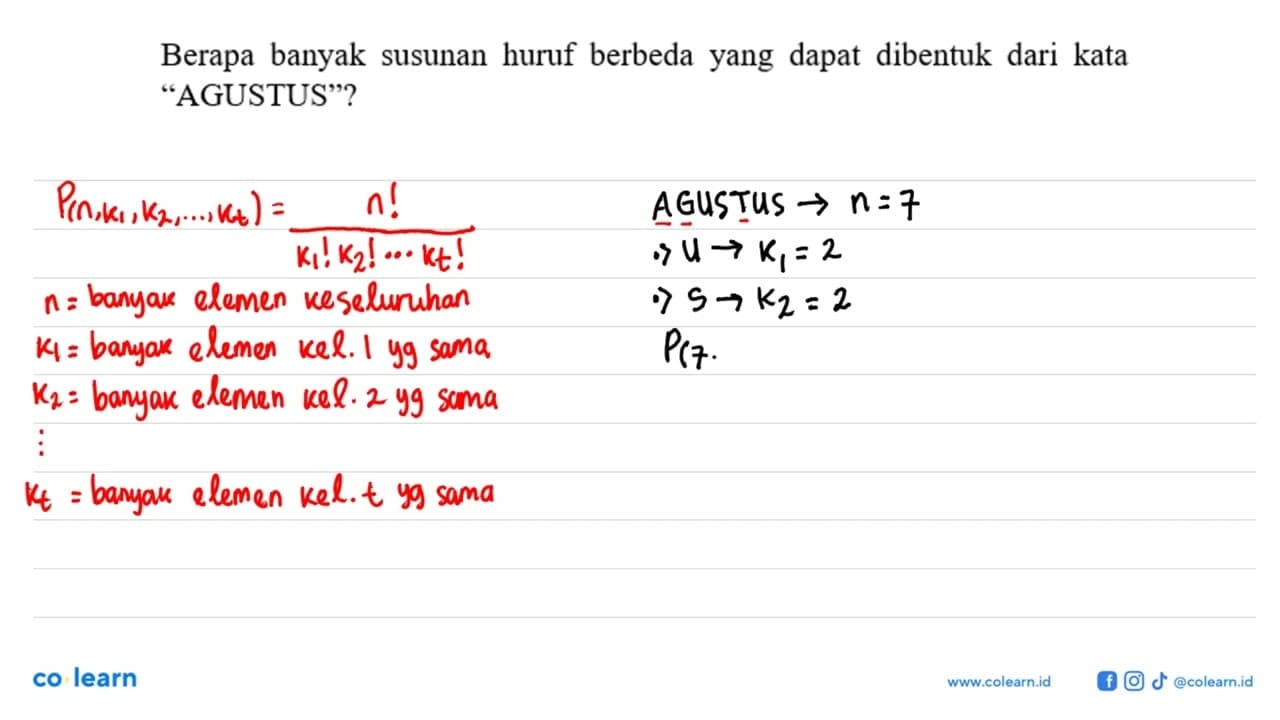 Berapa banyak susunan huruf berbeda yang dapat dibentuk dari kata
“AGUSTUS”?
P(n,k1,k2,...,kt) = n! / k1! k2! ... kt!
n = banyak elemen keseluruhan
k1 = banyak elemen kel. 1 yg sama
k2 = banyak elemen kel. 2 yg sama
⋮
kt = banyak elemen kel. t yg sama
AGUSTUS → n = 7
•) U → k1 = 2
•) S → k2 = 2
P(7.
co learn
www.colearn.id
@colearn.id